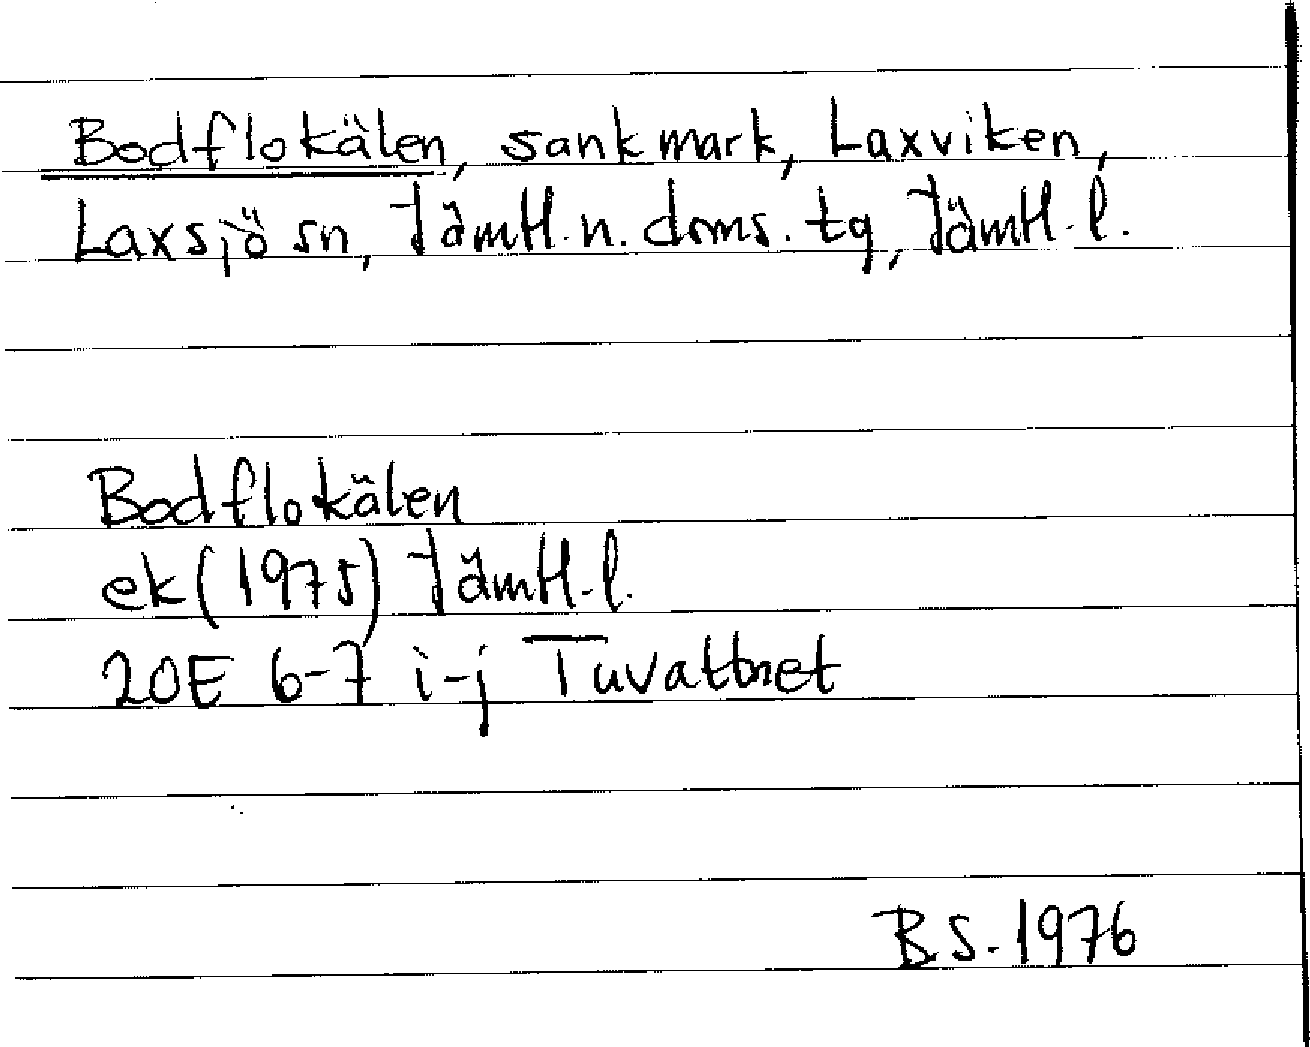 Bodflokälen, sankmark, Laxviken,
Laxsjö sn, Jämtl. n. doms. tg, Jämtl. l.
Bodflokälen
ek (1975) Jämtl. l.
20E 6-7 i-j Tuvattnet
B S. 1976